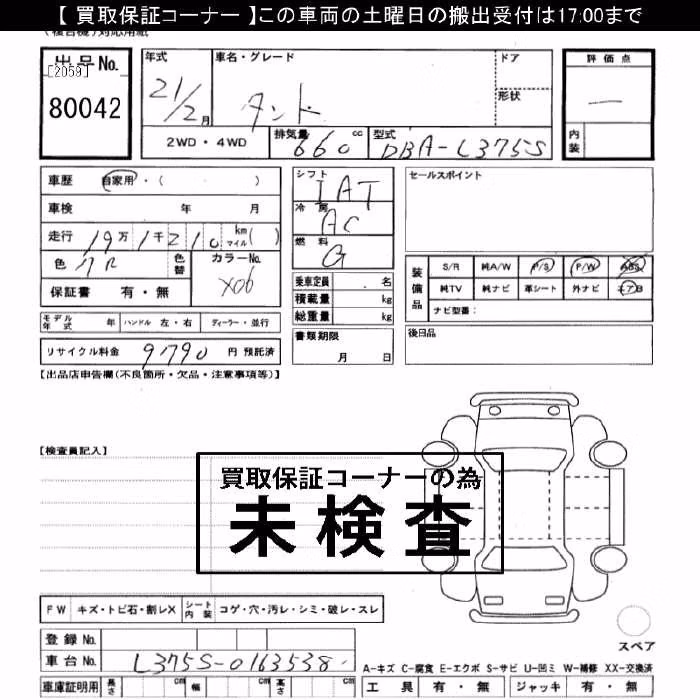 【 買取保証コーナー 】この車両の土曜日の搬出受付は17:00まで
(複合機)対応用紙
出品No.
[2059]
80042
年式
21/2月
車名・グレード
タント
ドア
形状
評価点
—
内装
2WD・4WD
排気量
660
cc
型式
DBA-L375S
車歴 自家用・( )
車検 年 月
走行 19万1千210 km マイル( )
色
色替
カラーNo.
X06
保証書 有・無
シフト
IAT
冷房
AC
燃料
G
乗車定員 名
積載量 kg
総重量 kg
セールスポイント
装備品
S/R 純A/W P/S P/W ABS
純TV 純ナビ 革シート 外ナビ エアB
ナビ型番:
モデル年式 年 ハンドル 左・右 ディーラー・並行
書類期限
月 日
後日品
リサイクル料金 9790 円 預託済
【出品店申告欄(不良箇所・欠品・注意事項等)】
【検査員記入】
買取保証コーナーの為
未検査
FW キズ・トビ石・割レX シート内装 コゲ・穴・汚レ・シミ・破レ・スレ
スペア
登録 No.
車台 No. L375S-0163538
A-キズ C-腐食 E-エクボ S-サビ U-凹ミ W-補修 XX-交換済
車庫証明用 長さ cm 幅 cm 高さ cm
工具 有・無 ジャッキ 有・無